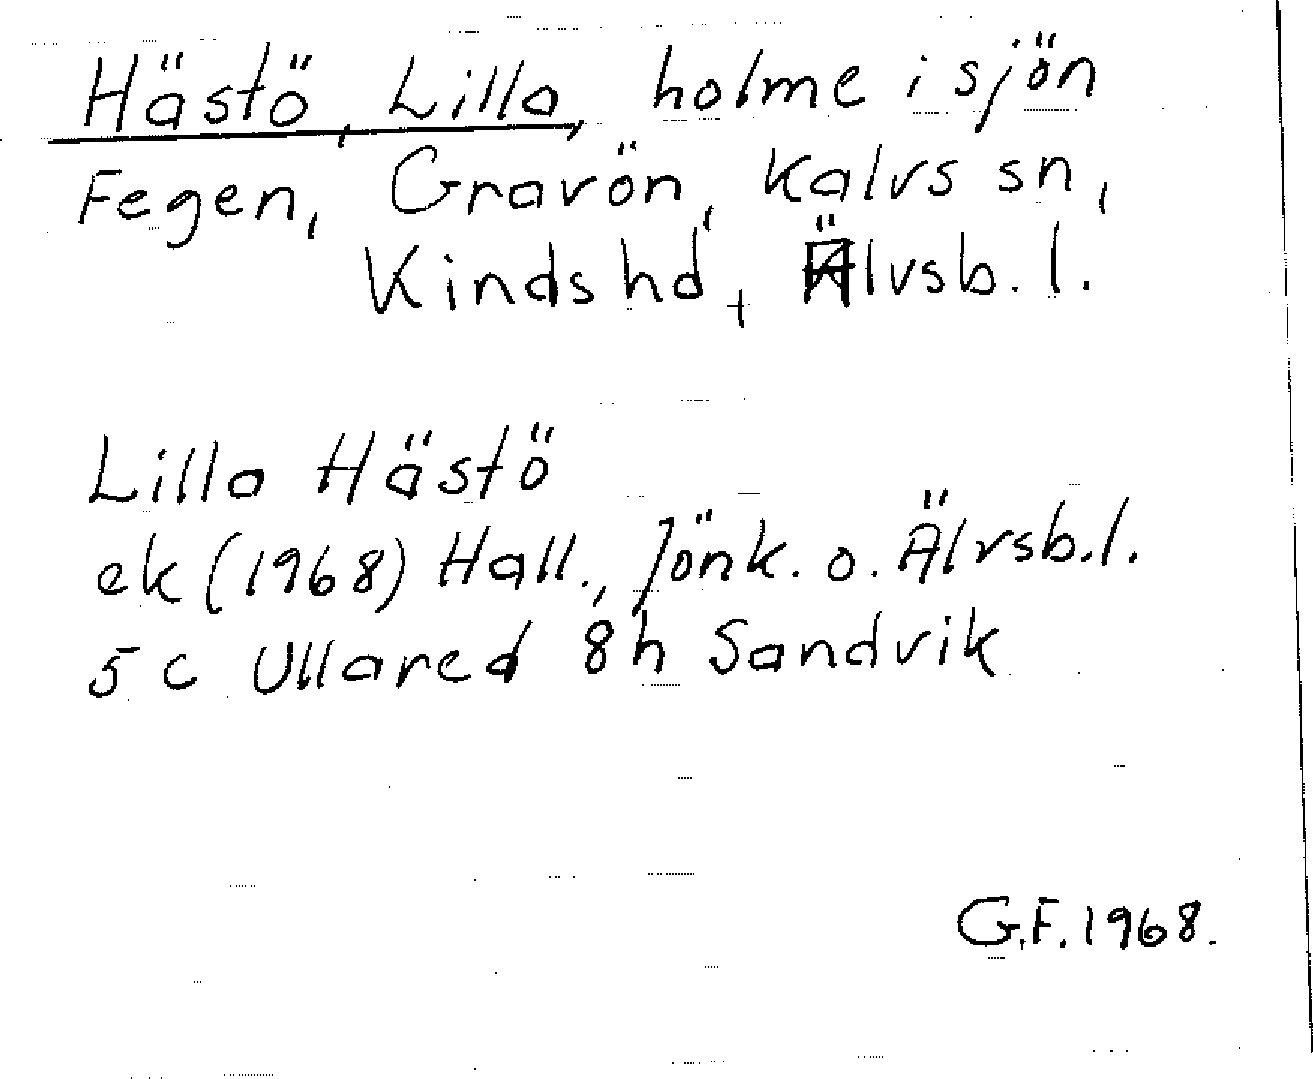 Hästö, Lilla, holme i sjön
Fegen, Gravön, Kalvs sn,
Kinds hd, Älvsb. l.
Lilla Hästö
ek (1968) Hall., Jönk. o. Älvsb.l.
5 c Ullared 8h Sandvik
G.F. 1968.